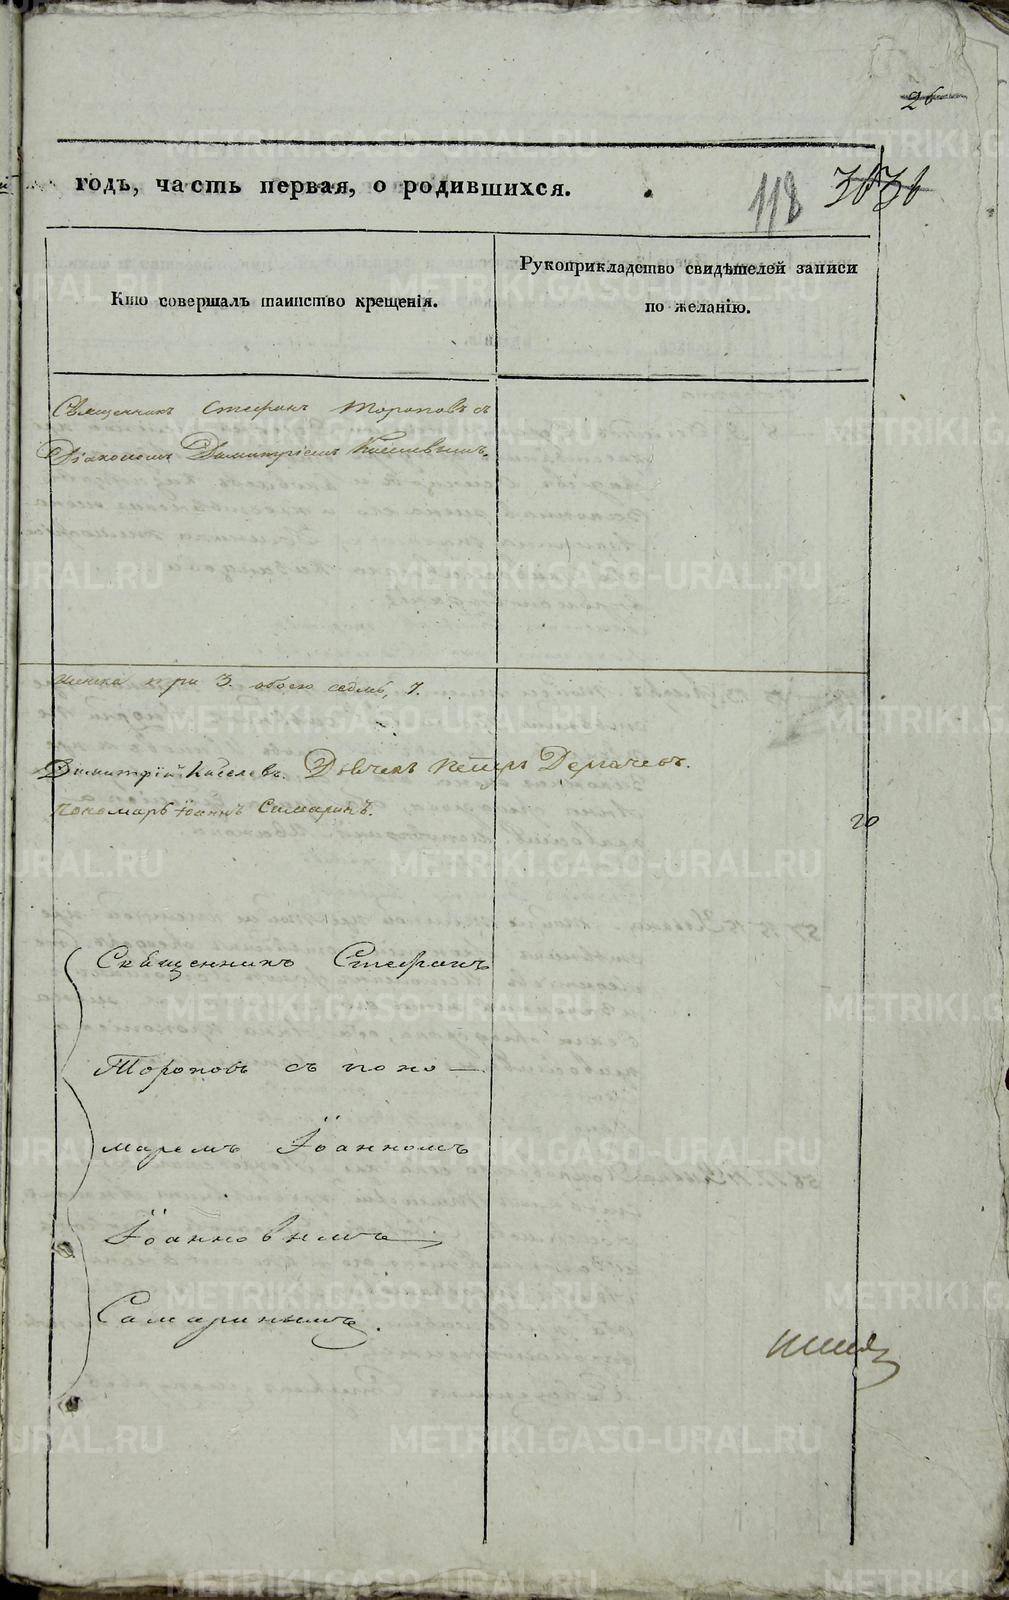 26
годъ, часть первая, о родившихся.
118
36 36
Кто совершалъ таинство крещенія.
Рукоприкладство свидѣтелей записи
по желанію.
Священникъ Стефанъ Тороповъ съ
Діакономъ Димитріемъ Киселевымъ.
женска три 3. обоего седмь, 7.
Димитрій Киселевъ. Дьячекъ Петръ Дергачевъ.
пономарь Іоаннъ Самаринъ.
20
Священникъ Стефанъ
Тороповъ съ поно—
маремъ Іоанномъ
Іоанновымъ
Самаринымъ.
METRIKI.GASO-URAL.RU